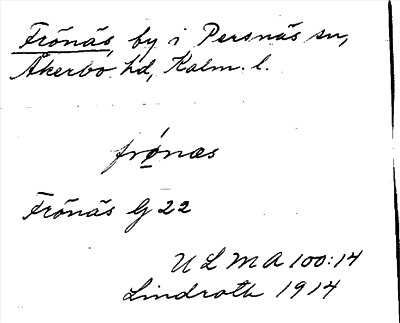 Frönäs, by i Persnäs sn,
Åkerbo hd, Kalm. l.
frǿnæs
Frönäs G 22
ULMA 100:14
Lindroth 1914